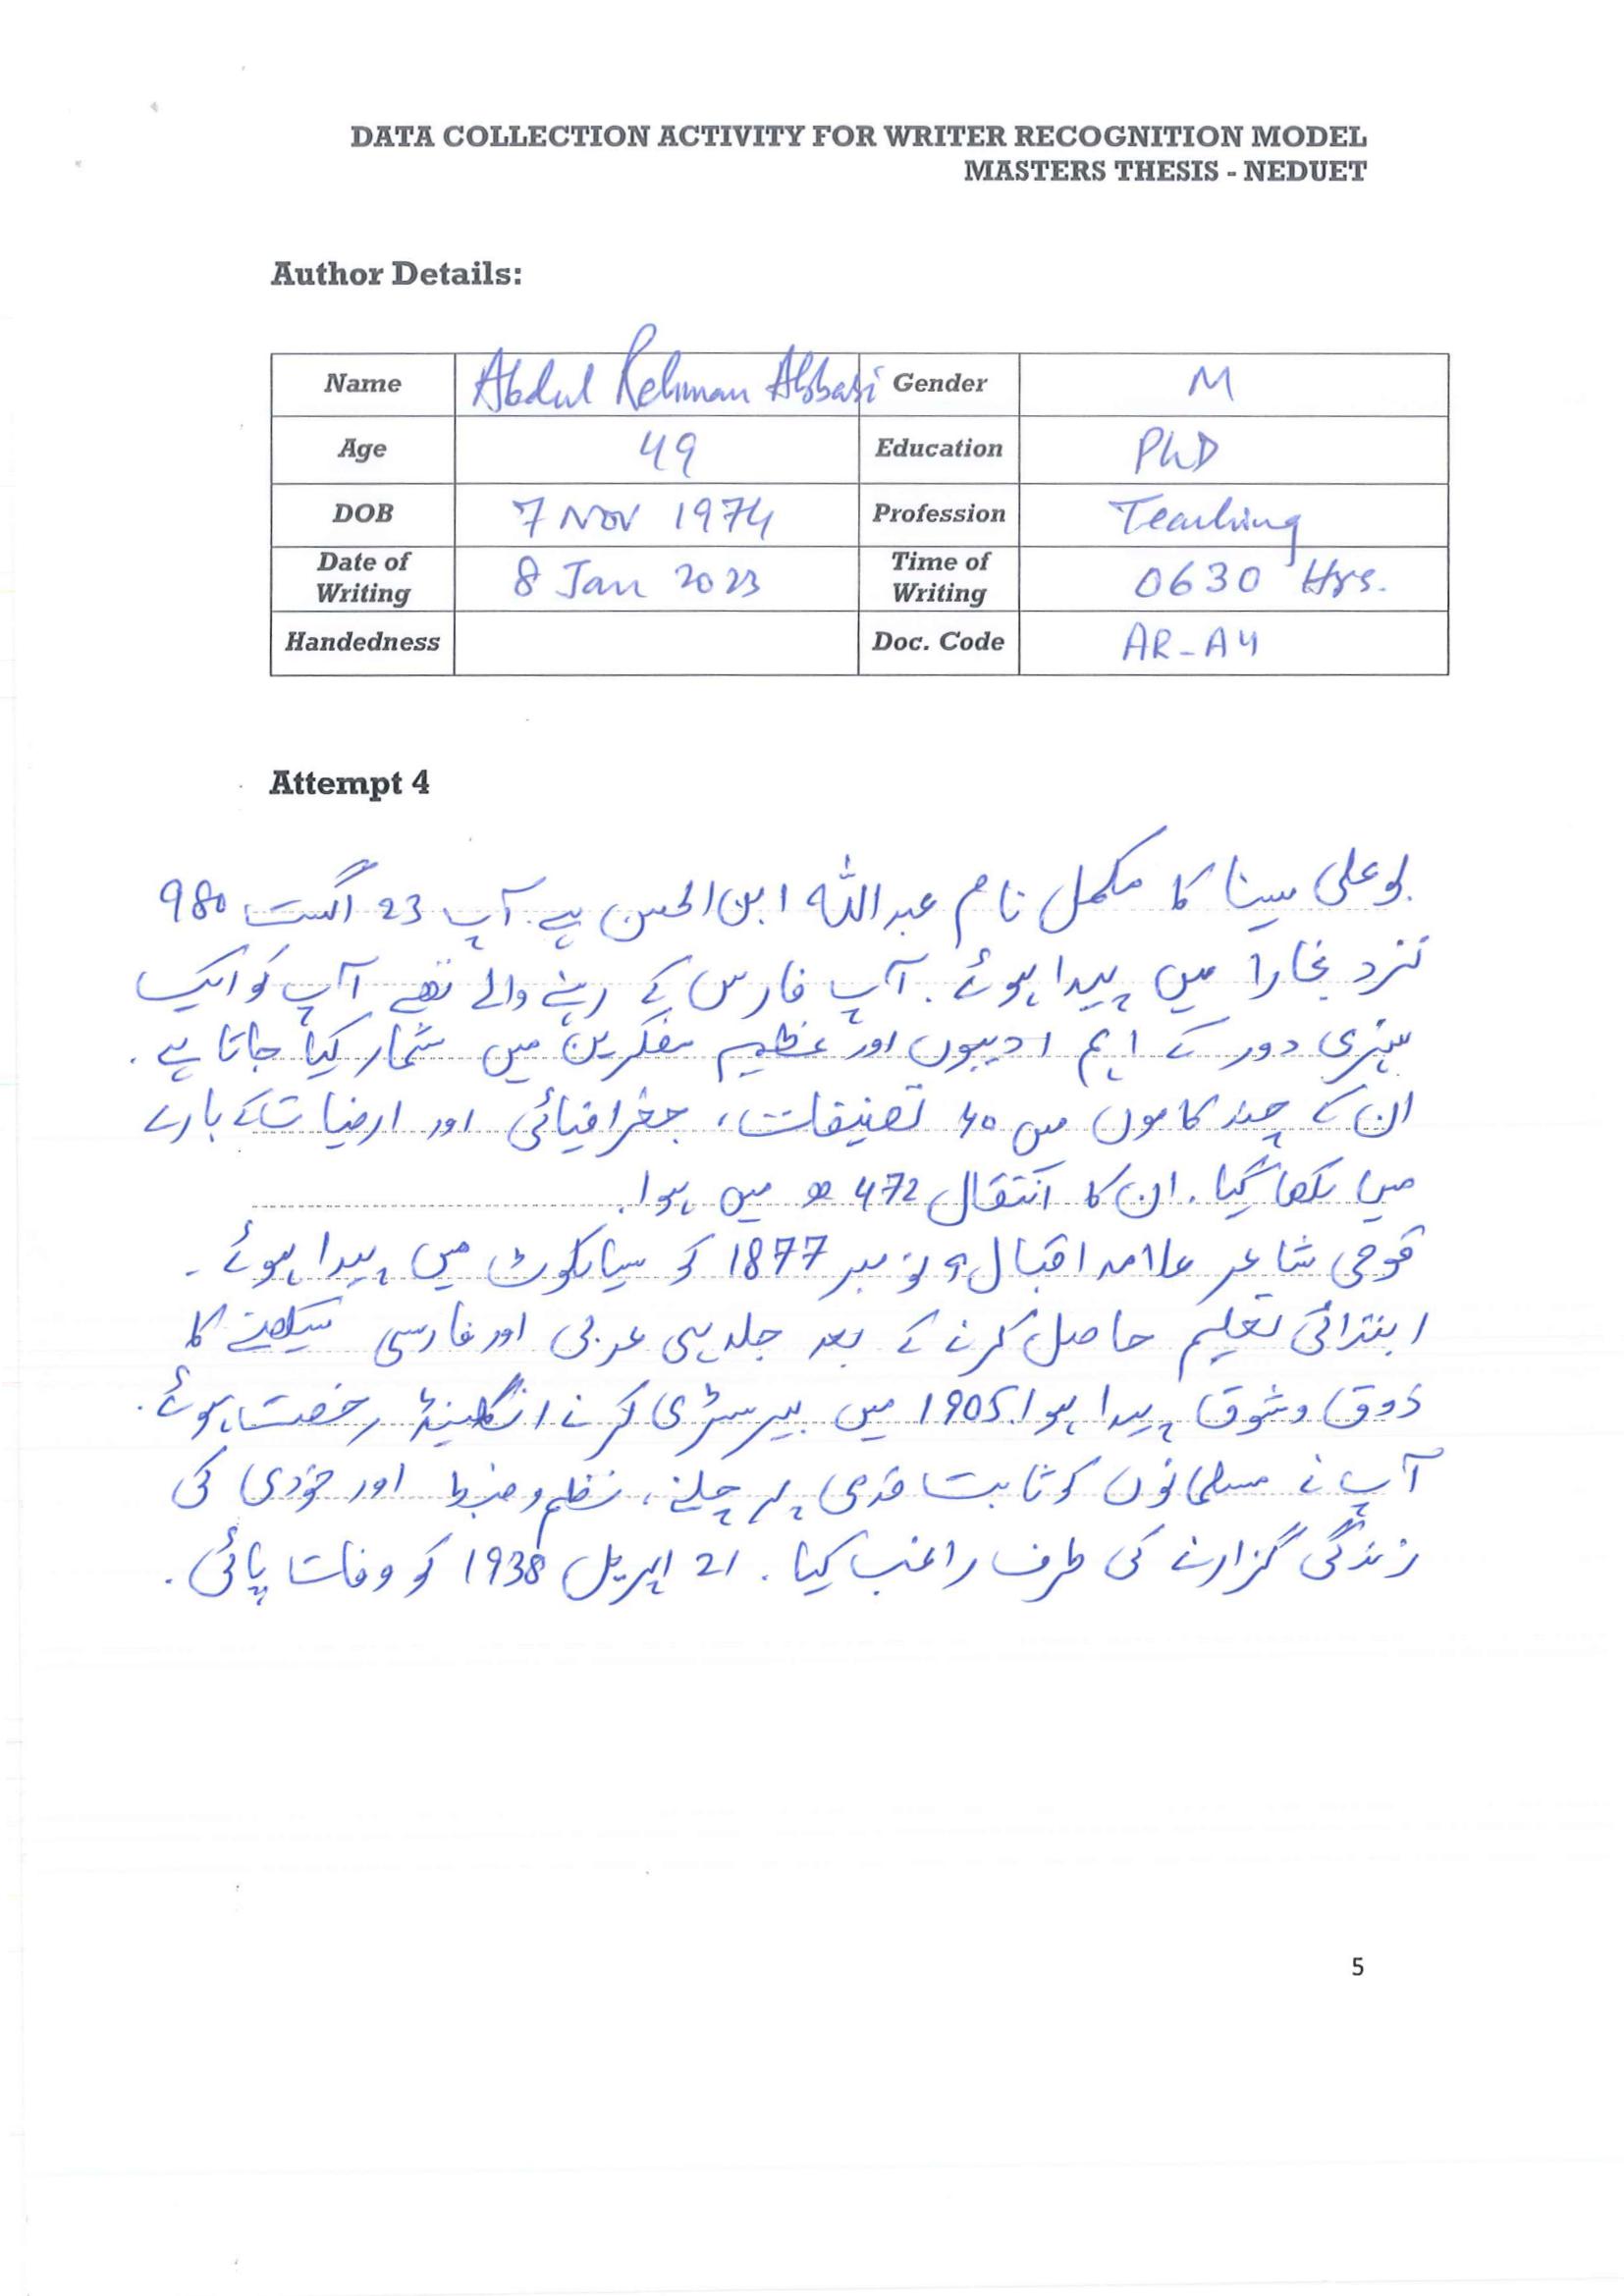 DATA COLLECTION ACTIVITY FOR WRITER RECOGNITION MODEL
MASTERS THESIS - NEDUET
Author Details:
Name Abdul Rehman Abbasi Gender M
Age 49 Education PhD
DOB 7 Nov 1974 Profession Teaching
Date of Writing 8 Jan 2023 Time of Writing 0630 Hrs.
Handedness Doc. Code AR-A4
Attempt 4
بوعلی سینا کا مکمل نام عبداللہ ابن الحسن ہے. آپ 23 اگست 980
نزد بخارا میں پیدا ہوئے. آپ فارس کے رہنے والے تھے آپ کو ایک
سنہری دور کے اہم ادیبوں اور عظیم مفکرین میں شمار کیا جاتا ہے.
ان کے چند کاموں میں 40 تصنیفات، جغرافیائی اور ارضیات کے بارے
میں لکھا گیا. ان کا انتقال 472 ھ میں ہوا.
قومی شاعر علامہ اقبال 9 نومبر 1877 کو سیالکوٹ میں پیدا ہوئے۔
ابتدائی تعلیم حاصل کرنے کے بعد جلد ہی عربی اور فارسی سیکھنے کا
ذوق و شوق پیدا ہوا. 1905 میں بیرسٹری کرنے انگلینڈ رخصت ہوئے.
آپ نے مسلمانوں کو ثابت قدمی پر چلنے، نظم و ضبط اور خودی کی
زندگی گزارنے کی طرف راغب کیا. 21 اپریل 1938 کو وفات پائی.
5